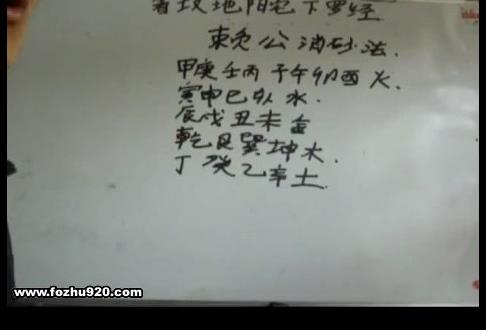 着坟地阳宅下罗经
赖免公消砂法.
甲庚壬丙子午卯酉火.
寅申巳亥水.
辰戌丑未金
乾艮巽坤木.
丁癸乙辛土.
www.fozhu920.com